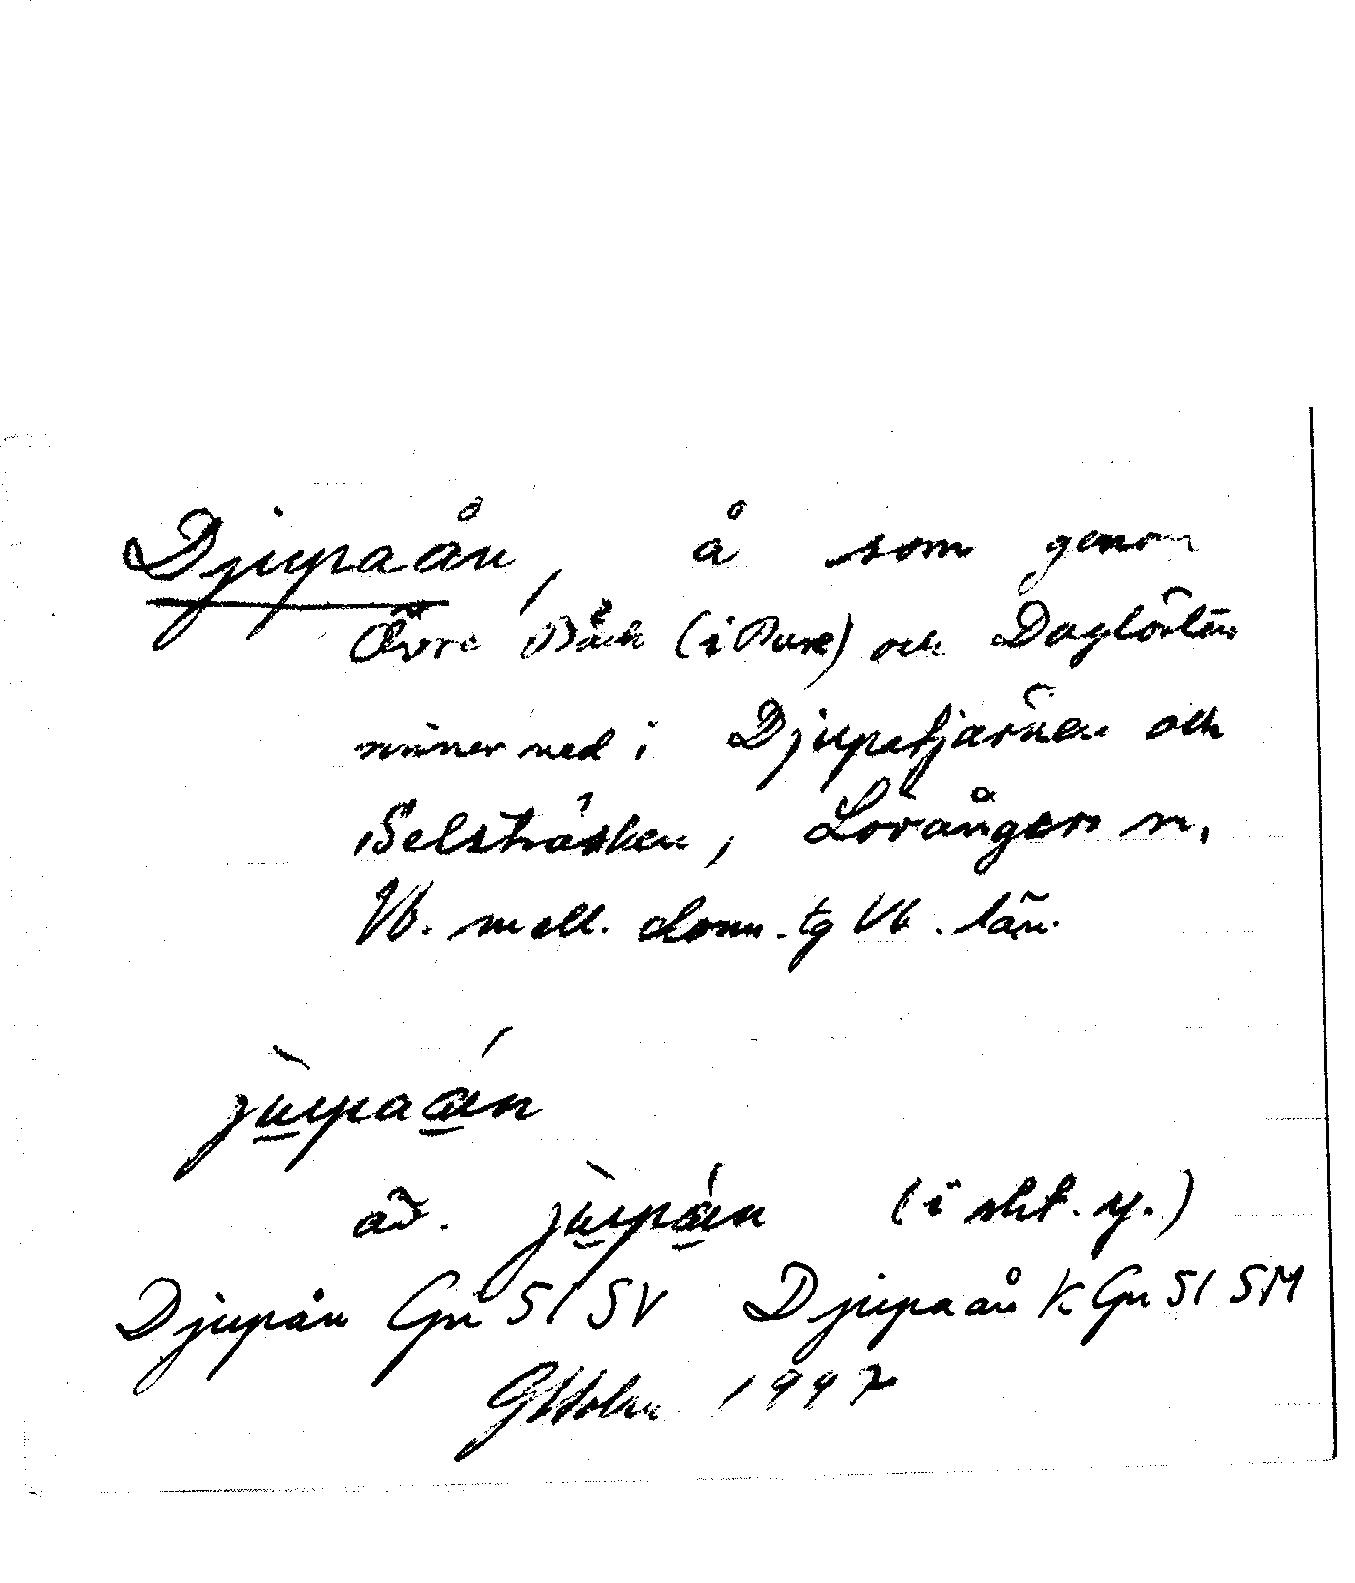 Djupaån, å som genom
Övre Bäck (i Bure) och
rinner ned i Djupetjärnen och
Selsträsken, Lövånger sn,
Vb. mell. dom.-tg Vb. län.
jùpaán
äv. jùpán (i sht. y.)
Djupån Gn 51 SV Djupaån K Gn 51 SM
GHolm 1997